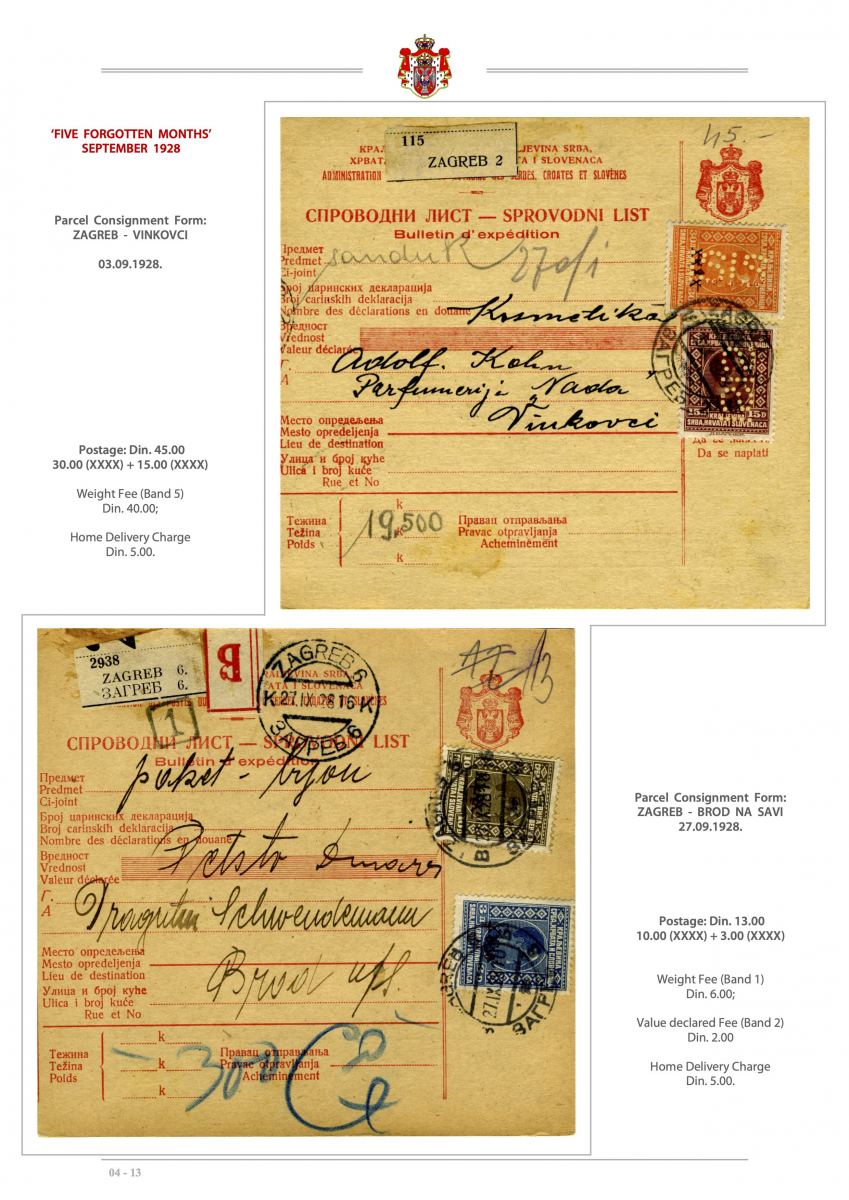 ‘FIVE FORGOTTEN MONTHS’
SEPTEMBER 1928
Parcel Consignment Form:
ZAGREB - VINKOVCI
03.09.1928.
Postage: Din. 45.00
30.00 (XXXX) + 15.00 (XXXX)
Weight Fee (Band 5)
Din. 40.00;
Home Delivery Charge
Din. 5.00.
45.-
115
ZAGREB 2
СПРОВОДНИ ЛИСТ — SPROVODNI LIST
Bulletin d'expédition
Предмет
Predmet
Ci-joint
sanduk
270/1
Број царинских декларација
Broj carinskih deklaracija
Nombre des déclarations en douane
Kosmetika
Вредност
Vrednost
Valeur déclarée
Г.
A
Adolf. Kohn
Parfumerija „Nada
Vinkovci
Место опредељења
Mesto opredeljenja
Lieu de destination
Улица и број куће
Ulica i broj kuće
Rue et No
Da se naplati
Тежина
Težina
Poids
k
k
19,500
Правац отправљања
Pravac otpravljanja
Acheminement
2938
ZAGREB 6.
ЗАГРЕБ 6.
B
ZAGREB 6
K 27.IX.28 16 K
ЗАГРЕБ 6
1
13
СПРОВОДНИ ЛИСТ — SPROVODNI LIST
Bulletin d'expédition
Предмет
Predmet
Ci-joint
paket
Број царинских декларација
Broj carinskih deklaracija
Nombre des déclarations en douane
Вредност
Vrednost
Valeur déclarée
Petsto Dinara
Г.
A
Dragutin Schwendemann
Место опредељења
Mesto opredeljenja
Lieu de destination
Brod n/s.
Улица и број куће
Ulica i broj kuće
Rue et No
Тежина
Težina
Poids
k
k
k
Правац отправљања
Pravac otpravljanja
Acheminement
Parcel Consignment Form:
ZAGREB - BROD NA SAVI
27.09.1928.
Postage: Din. 13.00
10.00 (XXXX) + 3.00 (XXXX)
Weight Fee (Band 1)
Din. 6.00;
Value declared Fee (Band 2)
Din. 2.00
Home Delivery Charge
Din. 5.00.
04 - 13